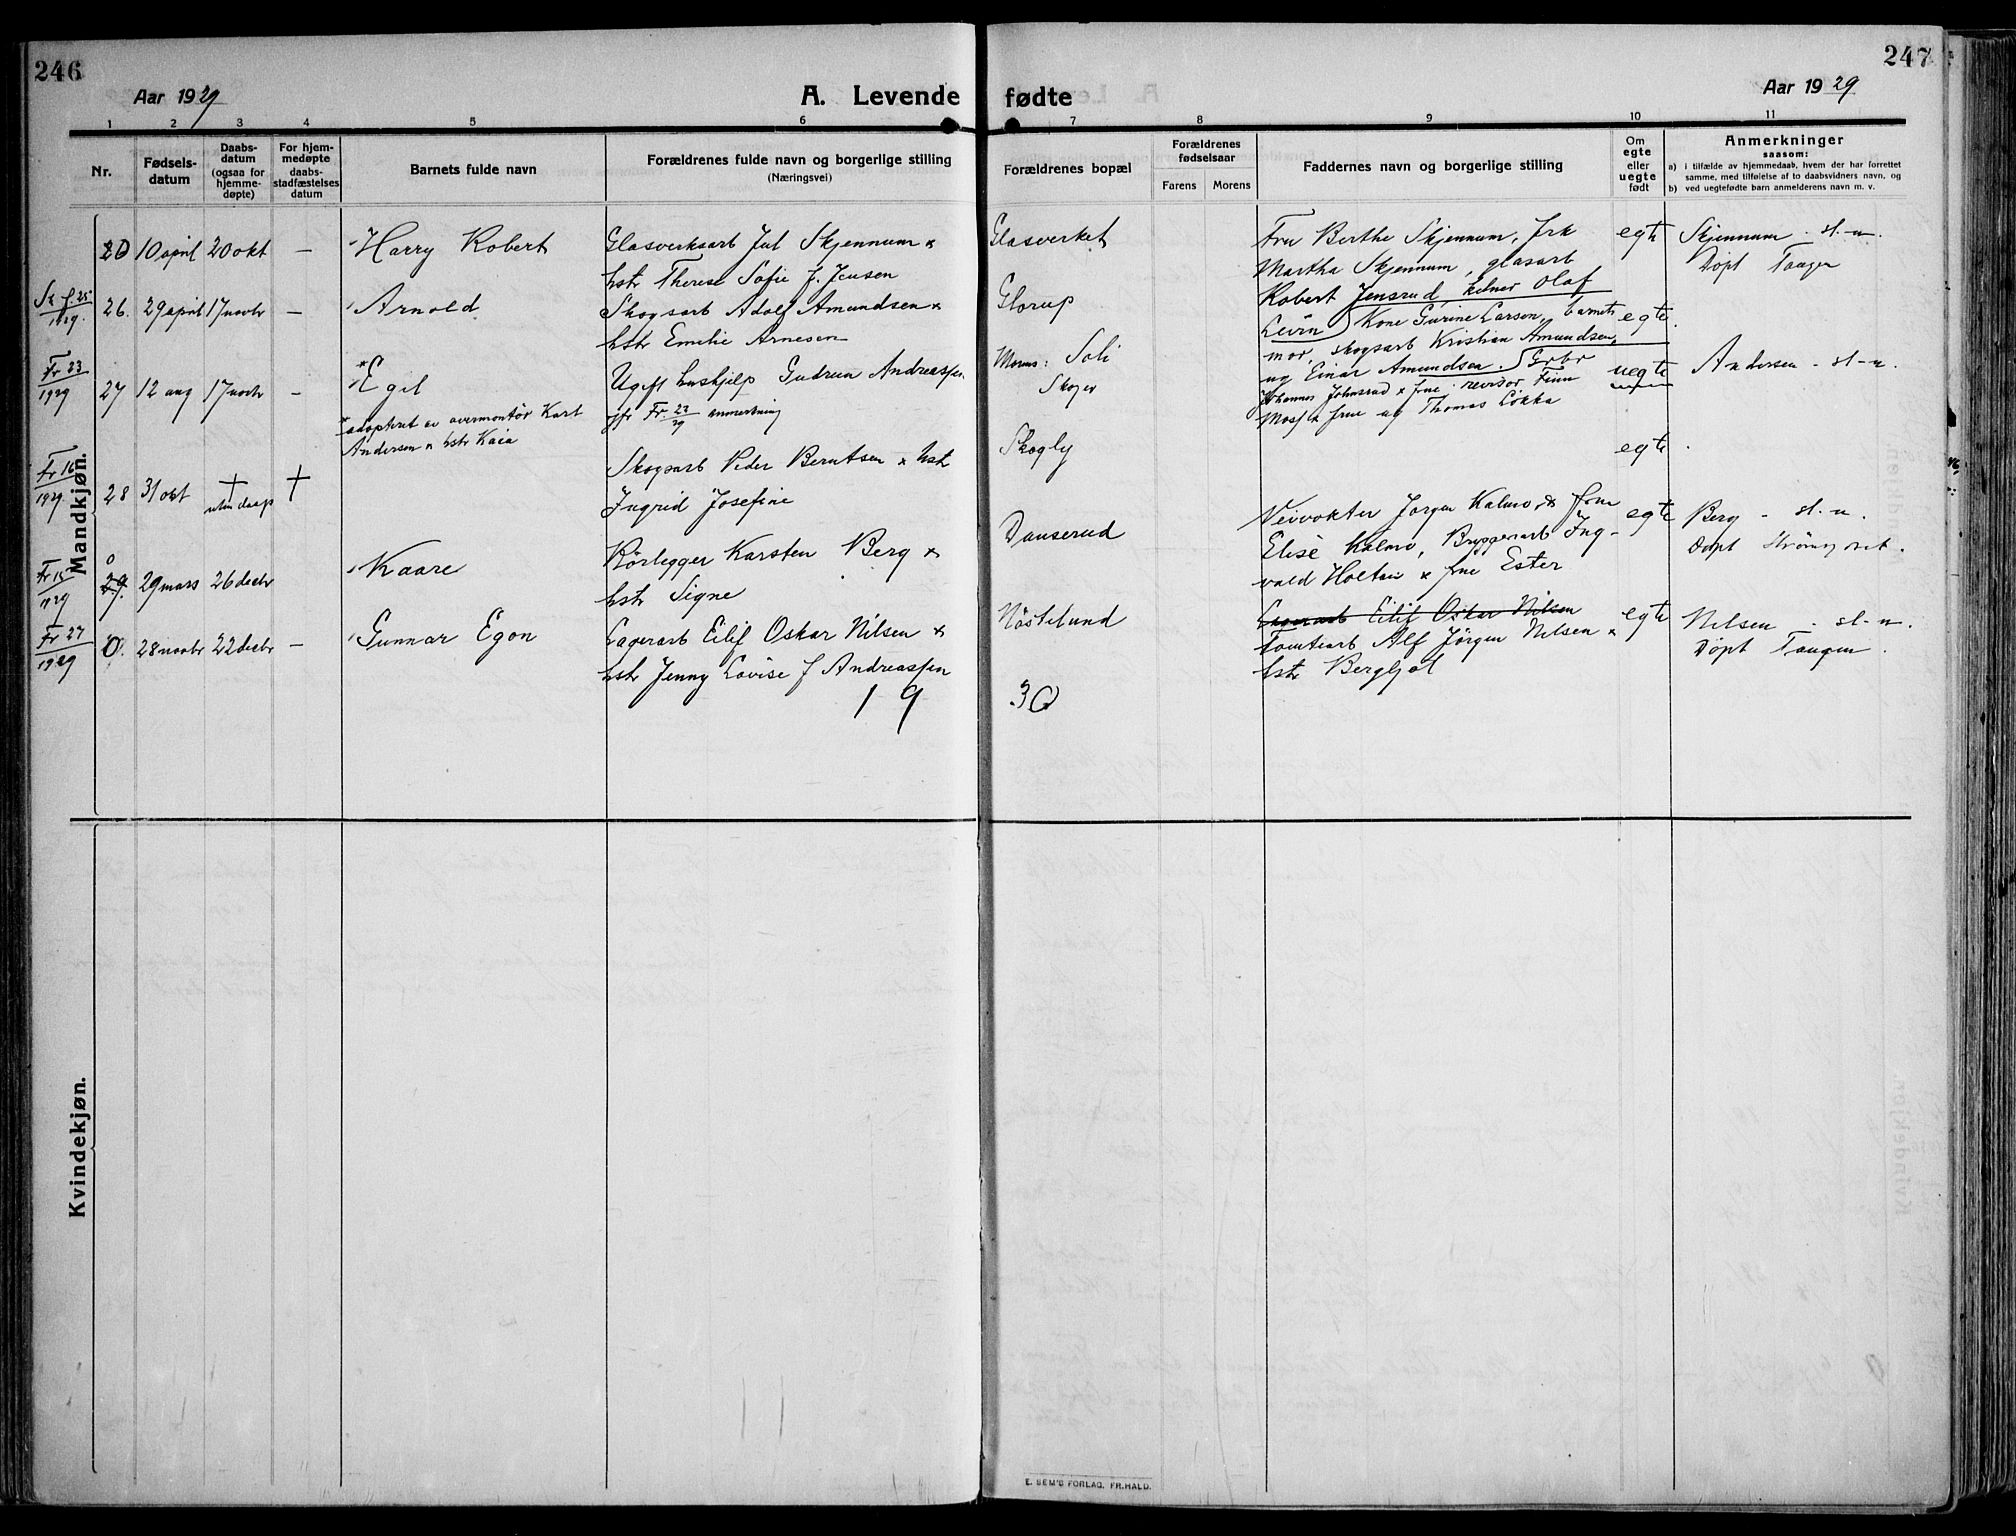 246
Aar 1929
A. Levende
1 2 3 4 5 6
Nr.
Fødsels-
datum
Daabs-
datum
(ogsaa for
hjemme-
døpte)
For hjem-
medøpte
daabs-
stadfæstelses
datum
Barnets fulde navn
Forældrenes fulde navn og borgerlige stilling
(Næringsvei)
Mandkjøn.
10 april 20 okt – Harry Robert Glasverksarb Jul Skjennum &
hstr Therese Sofie f. Jensen
1929. 26. 29 april 17 novbr – Arnold Skogsarb Adolf Amundsen &
hstr Emilie Arnesen
Fr 23
1929 27 12 aug 17 novbr – *Egil Ugift hushjelp Gudrun Andreassen
*adoptert av overmontør Kart
Andersen & hstr Kaia
jfr Fr. 23
29 anmerkning
Fr 16
1929. 28 31 okt † uten daap † Skogsarb Peder Berntsen & hstr
Ingrid Josefine
Fr 15
1929 0 29. 29 mars 26 decbr Kaare Rørlegger Karsten Berg &
hstr Signe
Fr 27
1929 0. 28 novbr 22 decbr – Gunnar Egon Lagerarb Eilif Oskar Nilsen &
hstr Jenny Lovise f Andreassen
19
Kvindekjøn.
247
Aar 1929
fødte
7 8 9 10 11
Forældrenes bopæl
Forældrenes
fødselsaar
Farens Morens
Faddernes navn og borgerlige stilling
Om
egte
eller
uegte
født
Anmerkninger
saasom:
a) i tilfælde av hjemmedaab, hvem der har forrettet
samme, med tilføielse af to daabsvidners navn, og
b) ved uegtefødte barn anmelderens navn m. v.
Glasverket Fru Berthe Skjennum, frk egte Skjennum – st.-n.
Martha Skjennum, glasarb Døpt Tangen
Robert Jensrud kelner Olaf
Glorup Levin Kone Gurine Larsen, barnets egte.
mor, skogsarb Kristian Amundsen,
Morens: Soli og Einar Amundsen. uegte Andersen – st-n.
Skoger Johannes Johnsrud & frue revisor Finn
Moss & frue og Thomas Løkka
Skogly egte
Danserud Veivokter Jørgen Kalmo, & frue egte Berg – st.-n.
Elise Kalmo, Bryggerarb Ing- Døpt Strømsgodset.
vald Holtan & frue Ester
Nøstelund Lagerarb Eilif Oskar Nilsen egte Nilsen – st-n.
Tomtearb Alf Jørgen Nilsen & Døpt Tangen.
hstr Bergljot
30
E. SEM'S FORLAG. FR.HALD.